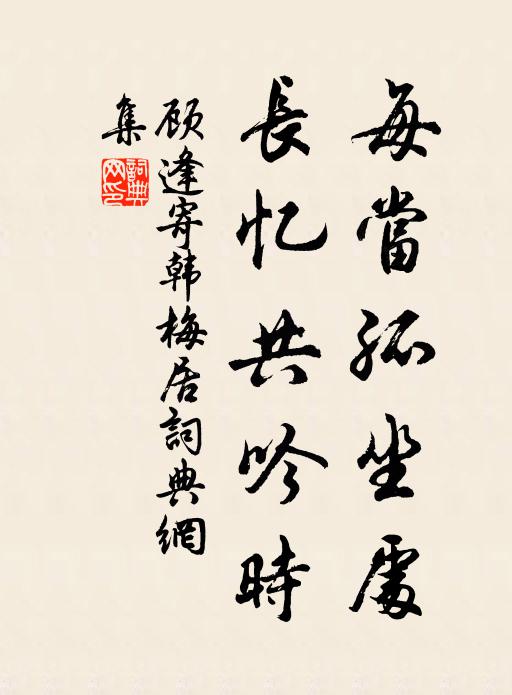 每當孤坐處
長忆共吟時
顾逢寄韩梅居詞典網
集
詞典
网印